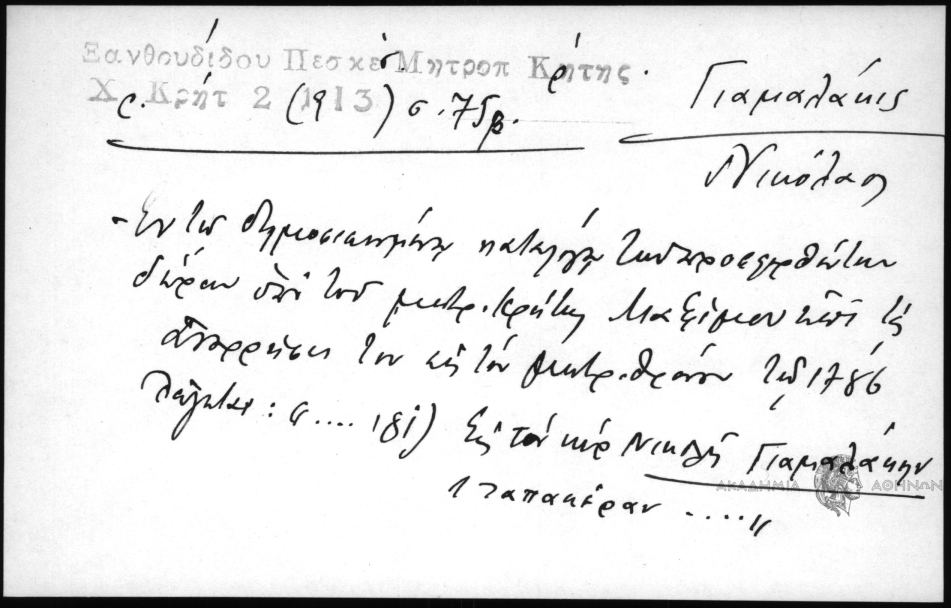 Ξανθουδίδου Πεσκέσ. Μητροπ Κρήτης.
Χρ. Κρήτ 2 (1913) σ. 75β.
Γιαμαλάκις
Νικόλαος
- Ἐν τῷ δημοσιευομένῳ καταλόγῳ τῶν προσφερθέντων
δώρων ὑπὸ τοῦ μητρ. Κρήτης Μαξίμου ἐπὶ τῇ
ἀναρρήσει του εἰς τὸν μητρ. θρόνον τῷ 1786
λέγεται: „ .... 181) Εἰς τὸν κὺρ Νικολῆ Γιαμαλάκην
1 ταπακέραν ....."
ΑΚΑΔΗΜΙΑ ΑΘΗΝΩΝ